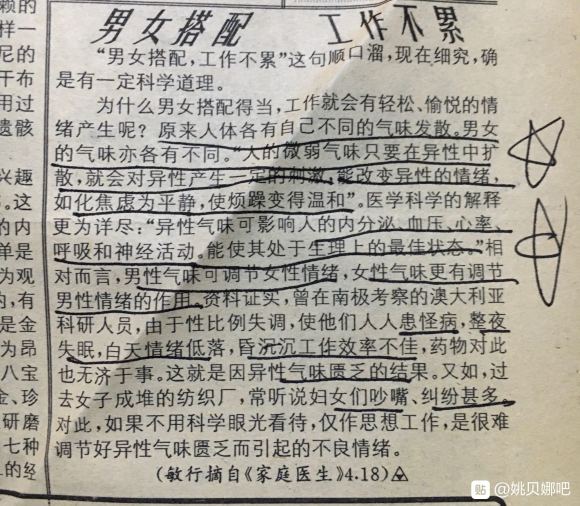 男女搭配 工作不累
“男女搭配,工作不累”这句顺口溜,现在细究,确
是有一定科学道理。
为什么男女搭配得当,工作就会有轻松、愉悦的情
绪产生呢?原来人体各有自己不同的气味发散。男女
的气味亦各有不同。“人的微弱气味只要在异性中扩
散,就会对异性产生一定的刺激,能改变异性的情绪,
如化焦虑为平静,使烦躁变得温和”。医学科学的解释
更为详尽:“异性气味可影响人的内分泌、血压、心率、
呼吸和神经活动。能使其处于生理上的最佳状态。”相
对而言,男性气味可调节女性情绪,女性气味更有调节
男性情绪的作用。资料证实,曾在南极考察的澳大利亚
科研人员,由于性比例失调,使他们人人患怪病,整夜
失眠,白天情绪低落,昏沉沉工作效率不佳,药物对此
也无济于事。这就是因异性气味匮乏的结果。又如,过
去女子成堆的纺织厂,常听说妇女们吵嘴、纠纷甚多。
对此,如果不用科学眼光看待,仅作思想工作,是很难
调节好异性气味匮乏而引起的不良情绪。
(敏行摘自《家庭医生》4.18)
颇的
样一
尼的
干布
用过
遗骸
兴趣
。这
的内
单是
为观
内,有
是金
为昂
八宝
金、珍
研磨
七种
的经
贴 @姚贝娜吧